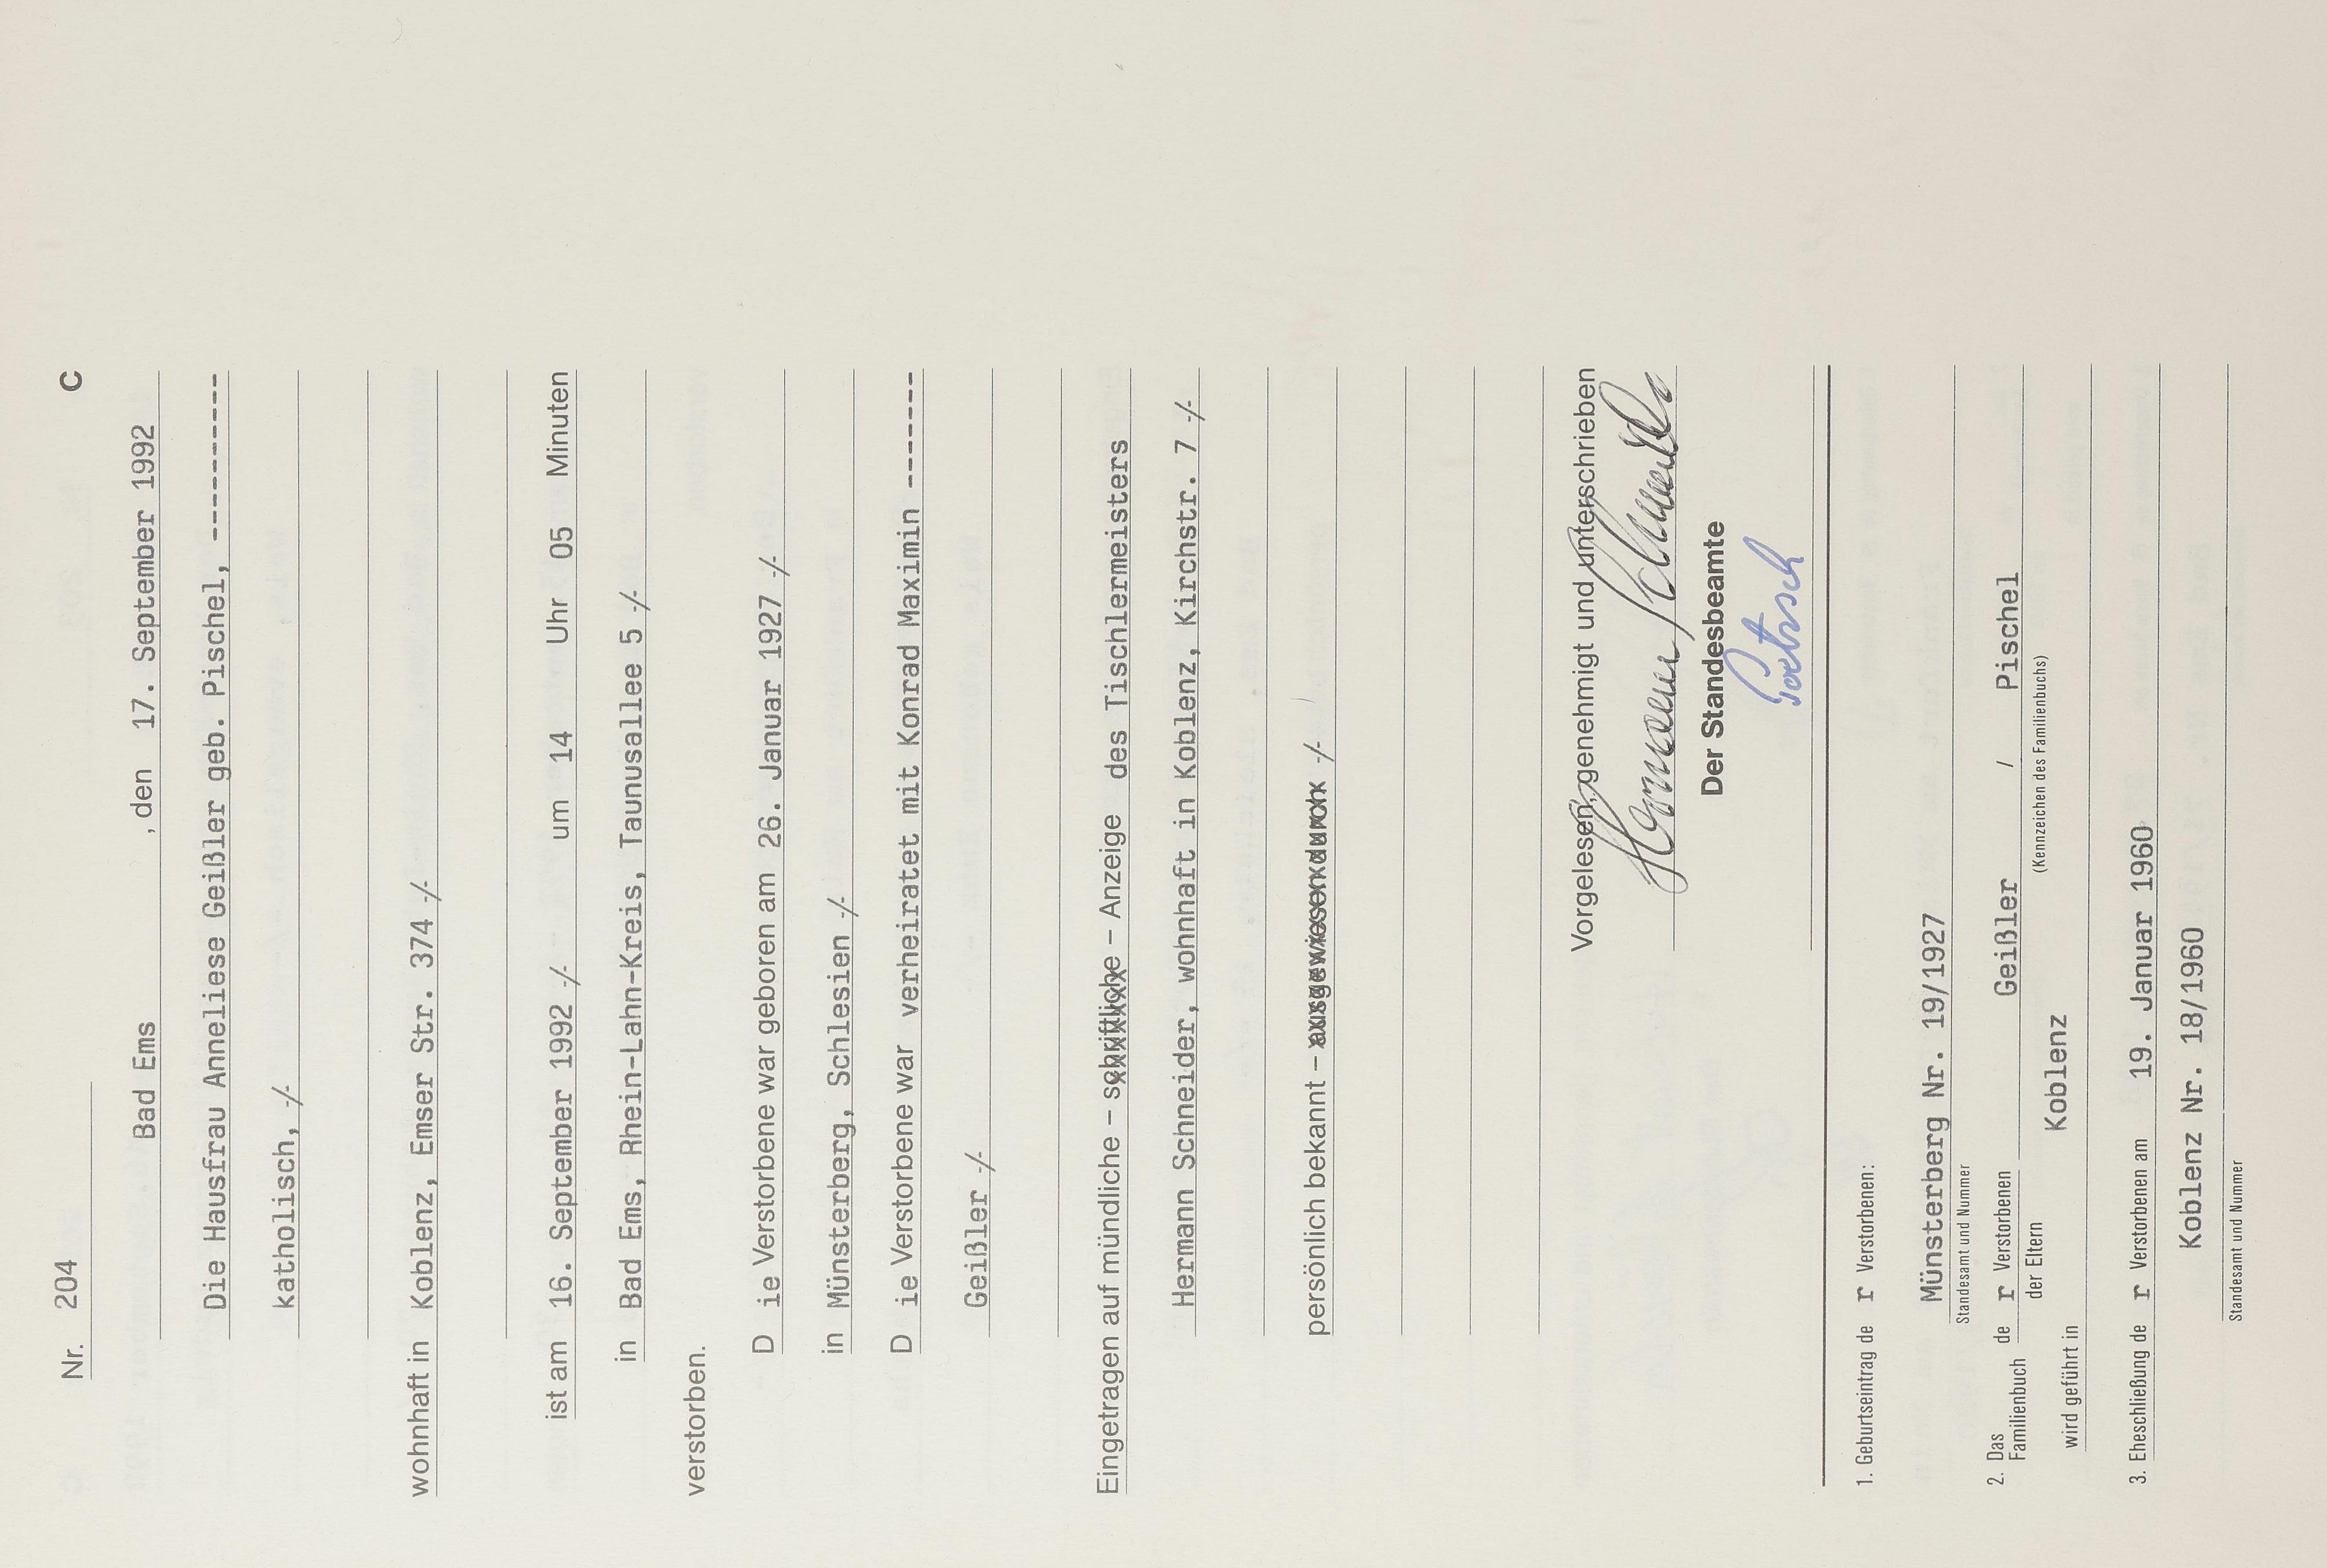 Nr. 204 C
Bad Ems , den 17. September 1992
Die Hausfrau Anneliese Geißler geb. Pischel, -----------
katholisch, -/-
wohnhaft in Koblenz, Emser Str. 374 -/-
ist am 16. September 1992 -/- um 14 Uhr 05 Minuten
in Bad Ems, Rhein-Lahn-Kreis, Taunusallee 5 -/-
verstorben.
D ie Verstorbene war geboren am 26. Januar 1927 -/-
in Münsterberg, Schlesien -/-
D ie Verstorbene war verheiratet mit Konrad Maximin --------
Geißler -/-
Eingetragen auf mündliche – schriftliche – Anzeige des Tischlermeisters
Hermann Schneider, wohnhaft in Koblenz, Kirchstr. 7 -/-
persönlich bekannt – ausgewiesen durch -/-
Vorgelesen, genehmigt und unterschrieben
Hermann Schneider
Der Standesbeamte
1. Geburtseintrag de r Verstorbenen:
Münsterberg Nr. 19/1927
Standesamt und Nummer
2. Das Familienbuch de r Verstorbenen Geißler / Pischel
der Eltern (Kennzeichen des Familienbuchs)
wird geführt in Koblenz
3. Eheschließung de r Verstorbenen am 19. Januar 1960
Koblenz Nr. 18/1960
Standesamt und Nummer